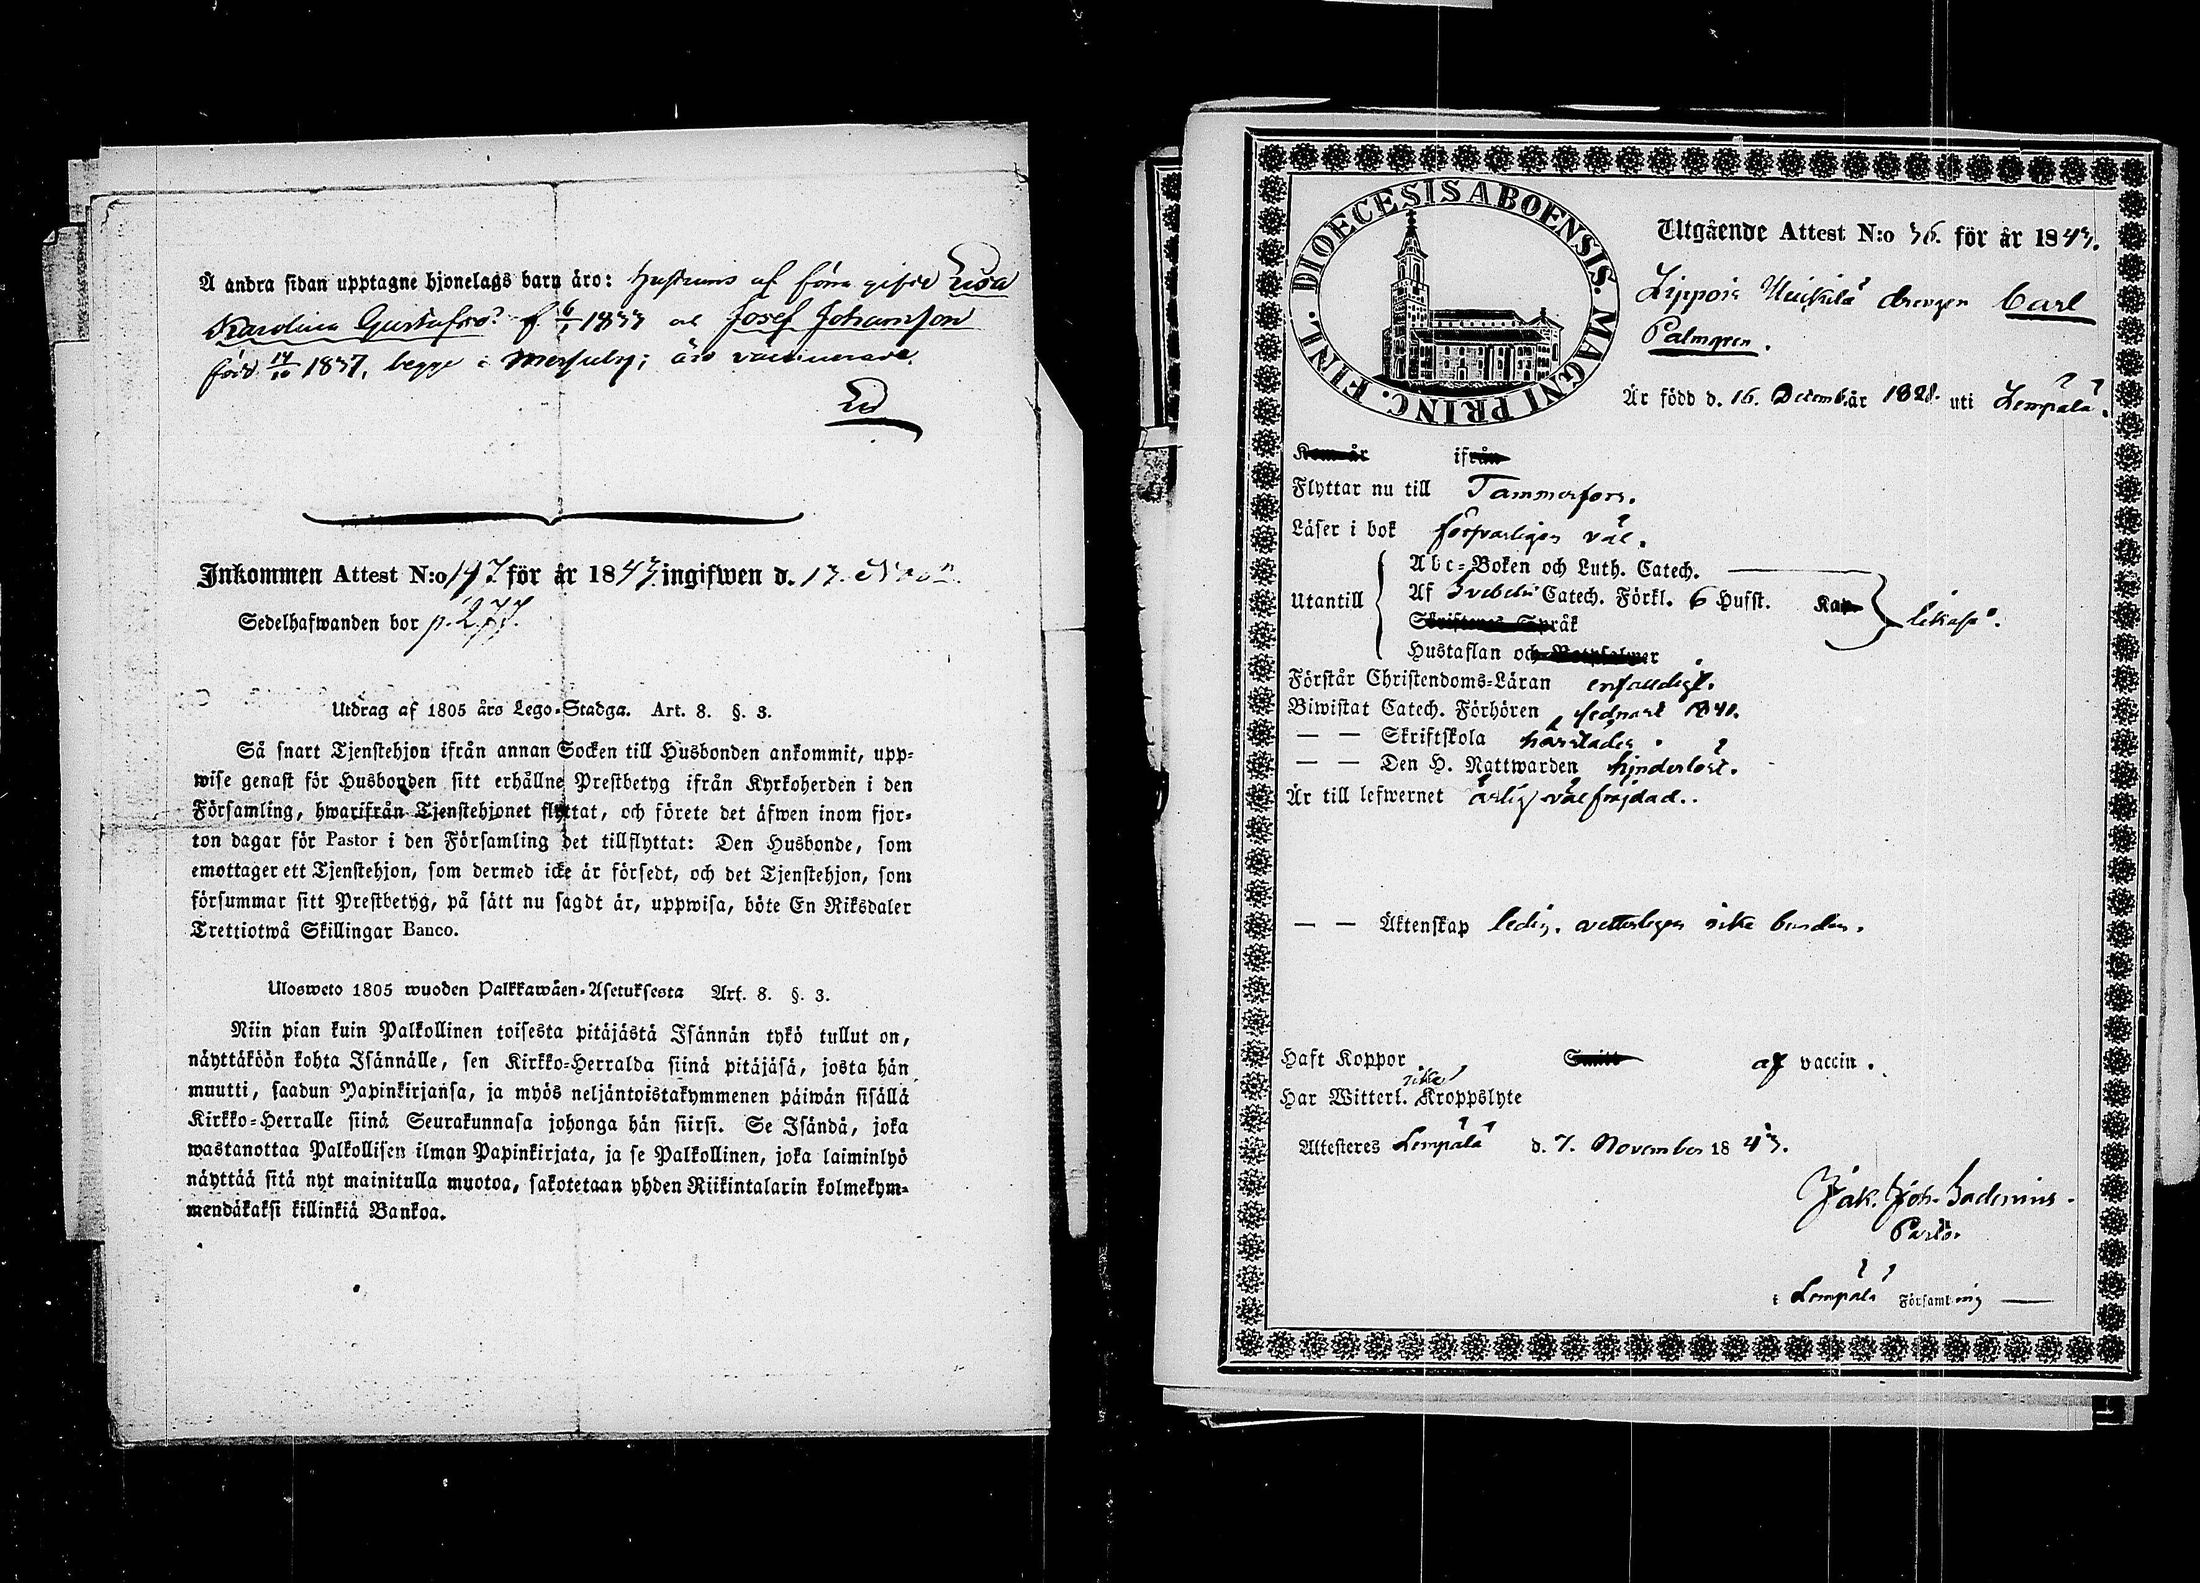 Å andra sidan upptagne hjonelags barn äro: hustruns af förra giftet Lisa
Karolina Gustafsd.r f. 6/1 1833 och Josef Johansson
född 14/10 1837, begge i Messuby; äro vaccinerade.
Inkommen Attest N:o 147 för år 1843. ingifwen d. 13. Nov.
Sedelhafwanden bor p. 277.
Utdrag af 1805 års Lego-Stadga. Art. 8. §. 3.
Så snart Tjenstehjon ifrån annan Socken till Husbonden ankommit, upp-
wise genast för Husbonden sitt erhållne Prestbetyg ifrån Kyrkoherden i den
Församling, hwarifrån Tjenstehjonet flyttat, och förete det äfwen inom fjor-
ton dagar för Pastor i den Församling det tillflyttat: Den Husbonde, som
emottager ett Tjenstehjon, som dermed icke är försedt, och det Tjenstehjon, som
försummar sitt Prestbetyg, på sätt nu sagdt är, uppwisa, böte En Riksdaler
Trettiotwå Skillingar Banco.
Ulosweto 1805 wuoden Palkkawäen-Asetuksesta Art. 8. §. 3.
Niin pian kuin Palkollinen toisesta pitäjästä Isännän tykö tullut on,
näyttäköön kohta Isännälle, sen Kirkko-Herralda siinä pitäjäsä, josta hän
muutti, saadun Papinkirjansa, ja myös neljäntoistakymmenen päiwän sisällä
Kirkko-Herralle siinä Seurakunnasa johonga hän siirsi. Se Isändä, joka
wastanottaa Palkollisen ilman Papinkirjata, ja se Palkollinen, joka laiminlyö
näyttää sitä nyt mainitulla muotoa, sakotetaan yhden Riikintalarin kolmekym-
mendäkaksi killinkiä Bankoa.
DIOECESIS ABOENSIS. MAGNI PRINC. FINL.
Utgående Attest N:o 36. för år 1843.
Lippois Uuikilä drengen Carl
Palmgren.
Är född d. 16. Decemb. år 1828. uti Lempälä.
Kom år ifrån
Flyttar nu till Tammerfors.
Läser i bok försvarligen väl.
Abc-Boken och Luth. Catech.
Utantill Af Svebelii Catech. Förkl. 6 Hufst. Kap likaså.
Skriftenes Språk
Hustaflan och Botpsalmer
Förstår Christendoms-Läran enfaldigt.
Biwistat Catech. Förhören sednast 1841.
— — Skriftskola härstädes.
— — Den H. Nattwarden hinderlöst.
Är till lefwernet ärlig, väl frejdad.
— — Äktenskap ledig. vetterligen icke bunden.
Haft Koppor Smitt af vaccin.
Har Witterl. icke Kroppslyte
Attesteres Lempälä d. 7. November 1843.
Jak. Joh. Sadenius.
Pastor
i Lempälä Församling